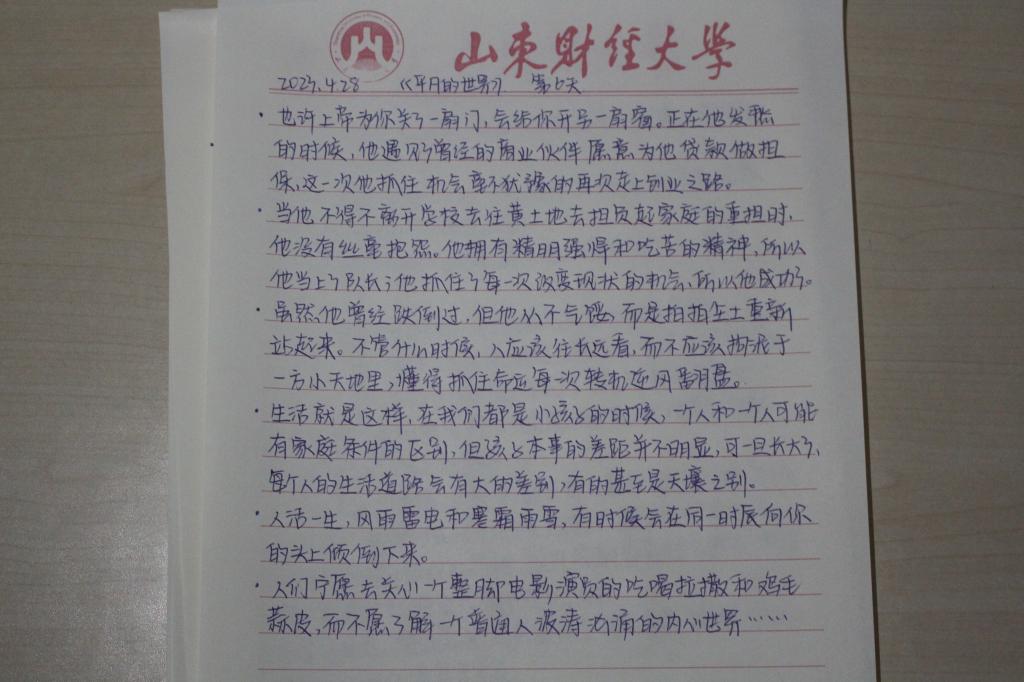 山东财经大学
2023.4.28 《平凡的世界》 第6天
· 也许上帝为你关了一扇门，会给你开另一扇窗。正在他发愁
的时候，他遇见了曾经的商业伙伴愿意为他贷款做担
保，这一次他抓住机会毫不犹豫的再次走上创业之路。
· 当他不得不离开学校去往黄土地去担负起家庭的重担时，
他没有丝毫抱怨。他拥有精明强悍和吃苦的精神，所以
他当上了队长；他抓住了每一次改变现状的机会，所以他成功了。
· 虽然他曾经跌倒过，但他从不气馁，而是拍拍尘土重新
站起来。不管什么时候，人应该往长远看，而不应该拘泥于
一方小天地里，懂得抓住命运每一次转机逆风翻盘。
· 生活就是这样，在我们都是小孩子的时候，一个人和一个人可能
有家庭条件的区别，但孩子本事的差距并不明显，可一旦长大了，
每个人的生活道路会有大的差别，有的甚至是天壤之别。
· 人活一生，风雨雷电和寒霜雨雪，有时候会在同一时辰向你
的头上倾倒下来。
· 人们宁愿去关心一个蹩脚电影演员的吃喝拉撒和鸡毛
蒜皮，而不愿了解一个普通人波涛汹涌的内心世界……